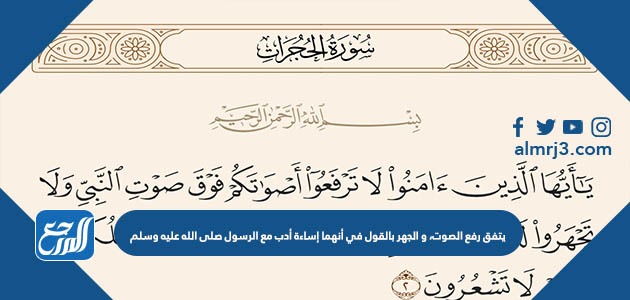 سُورَةُ الحُجُرَاتِ
بِسْمِ ٱللَّهِ ٱلرَّحْمَٰنِ ٱلرَّحِيمِ
almrj3.com
يَٰٓأَيُّهَا ٱلَّذِينَ ءَامَنُواْ لَا تَرْفَعُوٓاْ أَصْوَٰتَكُمْ فَوْقَ صَوْتِ ٱلنَّبِيِّ وَلَا
تَجْهَرُواْ
يتفق رفع الصوت، و الجهر بالقول في أنهما إساءة أدب مع الرسول صلى الله عليه وسلم
المرجع
لَا تَشْعُرُونَ ٢